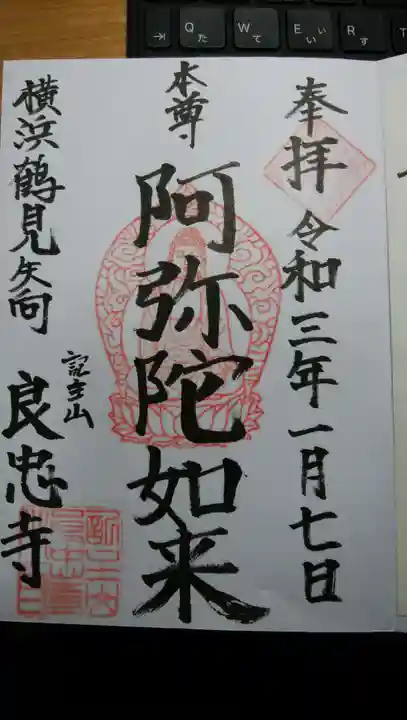 奉拝
令和三年一月七日
本尊
阿弥陀如来
横浜鶴見矢向
記主山
良忠寺
Q た
W て
E い ぃ
R す
T